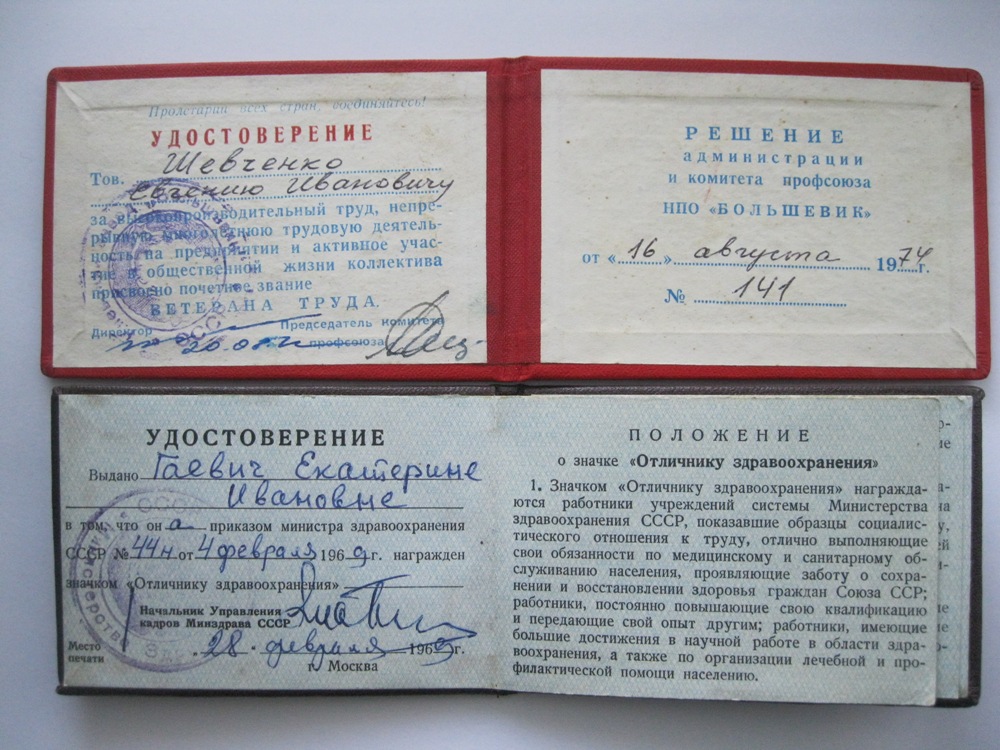 Пролетарии всех стран, соединяйтесь!
УДОСТОВЕРЕНИЕ
Тов. Шевченко
Евгению Ивановичу
за высокопроизводительный труд, непре-
рывную многолетнюю трудовую деятель-
ность на предприятии и активное учас-
тие в общественной жизни коллектива
присвоено почетное звание
ВЕТЕРАНА ТРУДА.
Директор Председатель комитета
профсоюза
РЕШЕНИЕ
администрации
и комитета профсоюза
НПО «БОЛЬШЕВИК»
от «16» августа 1974 г.
№ 141
УДОСТОВЕРЕНИЕ
Выдано Гаевич Екатерине
Ивановне
в том, что он а приказом министра здравоохранения
СССР № 44н от 4 февраля 1969 г. награжден
значком «Отличнику здравоохранения»
Начальник Управления
кадров Минздрава СССР
Место
печати
28 февраля 1969 г.
г. Москва
ПОЛОЖЕНИЕ
о значке «Отличнику здравоохранения»
1. Значком «Отличнику здравоохранения» награжда-
ются работники учреждений системы Министерства
здравоохранения СССР, показавшие образцы социалис-
тического отношения к труду, отлично выполняющие
свои обязанности по медицинскому и санитарному об-
служиванию населения, проявляющие заботу о сохра-
нении и восстановлении здоровья граждан Союза ССР;
работники, постоянно повышающие свою квалификацию
и передающие свой опыт другим; работники, имеющие
большие достижения в научной работе в области здра-
воохранения, а также по организации лечебной и про-
филактической помощи населению.